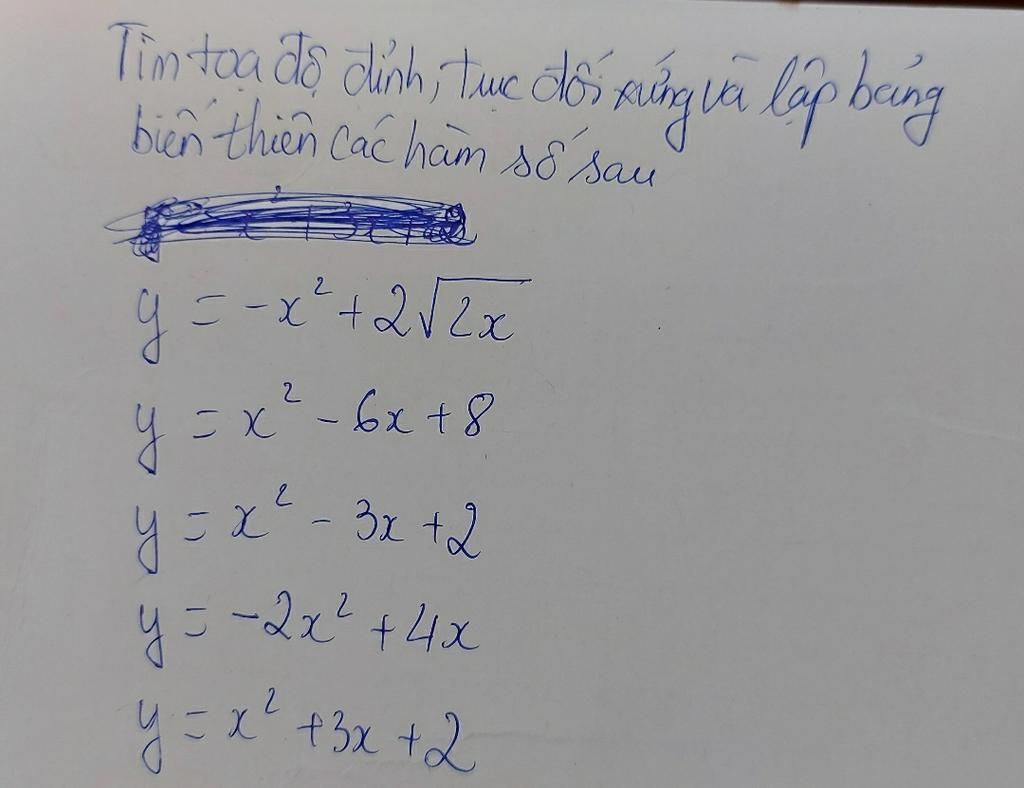 Tìm toạ độ đỉnh, trục đối xứng và lập bảng
biến thiên các hàm số sau
y = -x² + 2√2x
y = x² - 6x + 8
y = x² - 3x + 2
y = -2x² + 4x
y = x² + 3x + 2